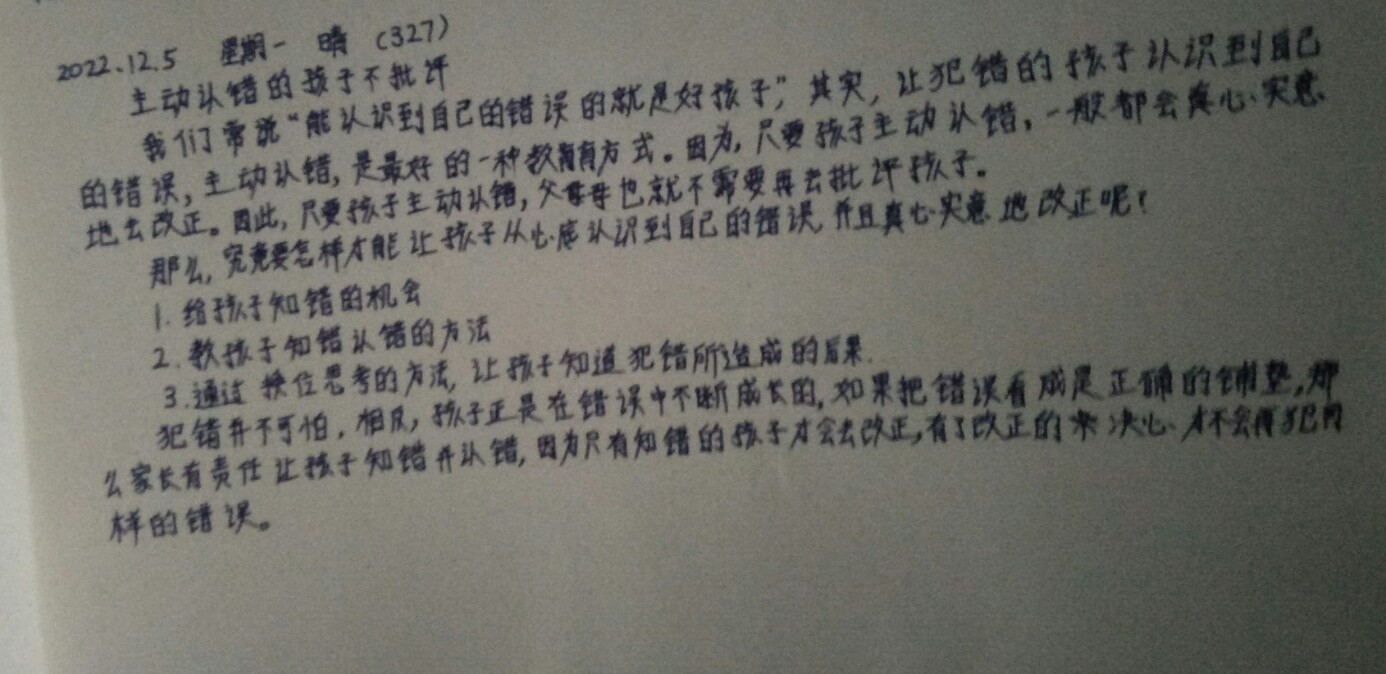 2022.12.5 星期一 晴 (327)
主动认错的孩子不批评
我们常说“能认识到自己的错误的就是好孩子”，其实，让犯错的孩子认识到自己
的错误，主动认错，是最好的一种教育方式。因为，只要孩子主动认错，一般都会真心实意
地去改正。因此，只要孩子主动认错，父母也就不需要再去批评孩子。
那么，究竟要怎样才能让孩子从心底认识到自己的错误，并且真心实意地改正呢？
1. 给孩子知错的机会
2. 教孩子知错认错的方法
3. 通过换位思考的方法，让孩子知道犯错所造成的后果.
犯错并不可怕，相反，孩子正是在错误中不断成长的，如果把错误看成是正确的铺垫，那
么家长有责任让孩子知错并认错，因为只有知错的孩子才会去改正，有了改正的决心才不会再犯同
样的错误。